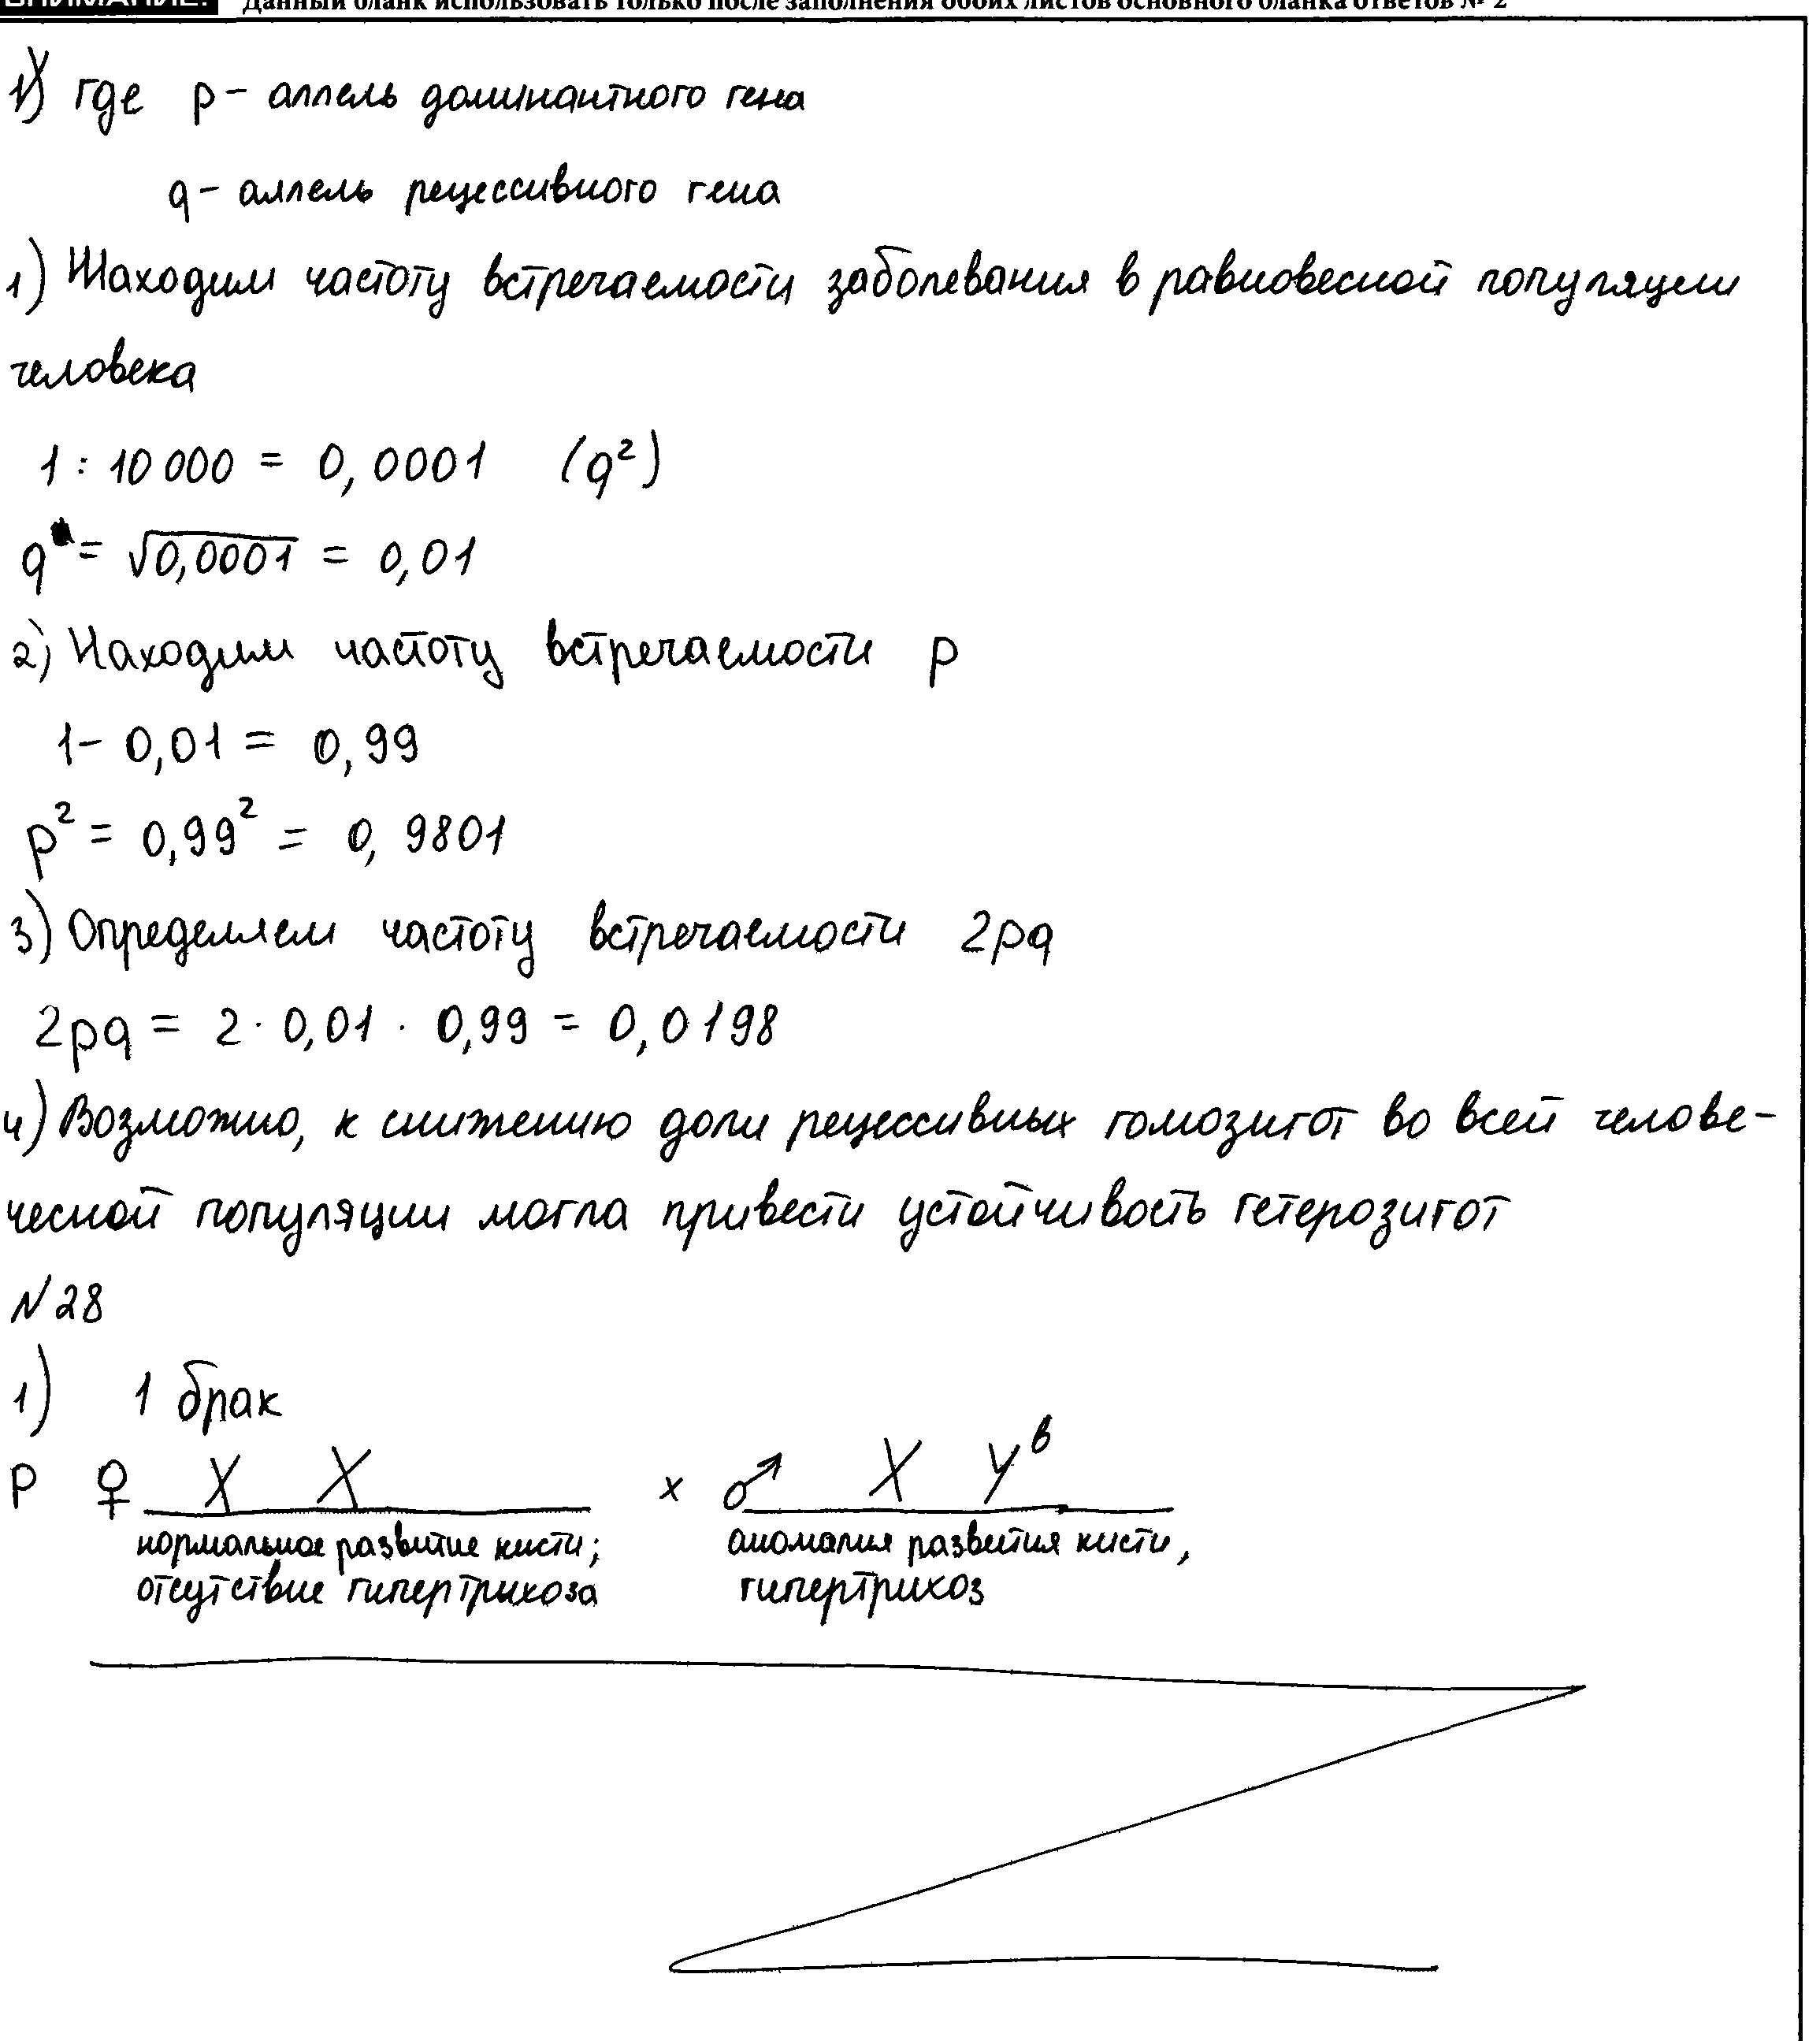 ВНИМАНИЕ! Данный бланк использовать только после заполнения обоих листов основного бланка ответов № 2
где p - аллель доминантного гена
q - аллель рецессивного гена
1) Находим частоту встречаемости заболевания в равновесной популяции
человека
1 : 10 000 = 0,0001 (q²)
q = √0,0001 = 0,01
2) Находим частоту встречаемости p
1 - 0,01 = 0,99
p² = 0,99² = 0,9801
3) Определяем частоту встречаемости 2pq
2pq = 2 · 0,01 · 0,99 = 0,0198
4) Возможно, к снижению доли рецессивных гомозигот во всей челове-
ческой популяции могла привести устойчивость гетерозигот
№28
1) 1 брак
P ♀ X X x ♂ X Y^b
нормальное развитие кисти; аномалия развития кисти,
отсутствие гипертрихоза гипертрихоз